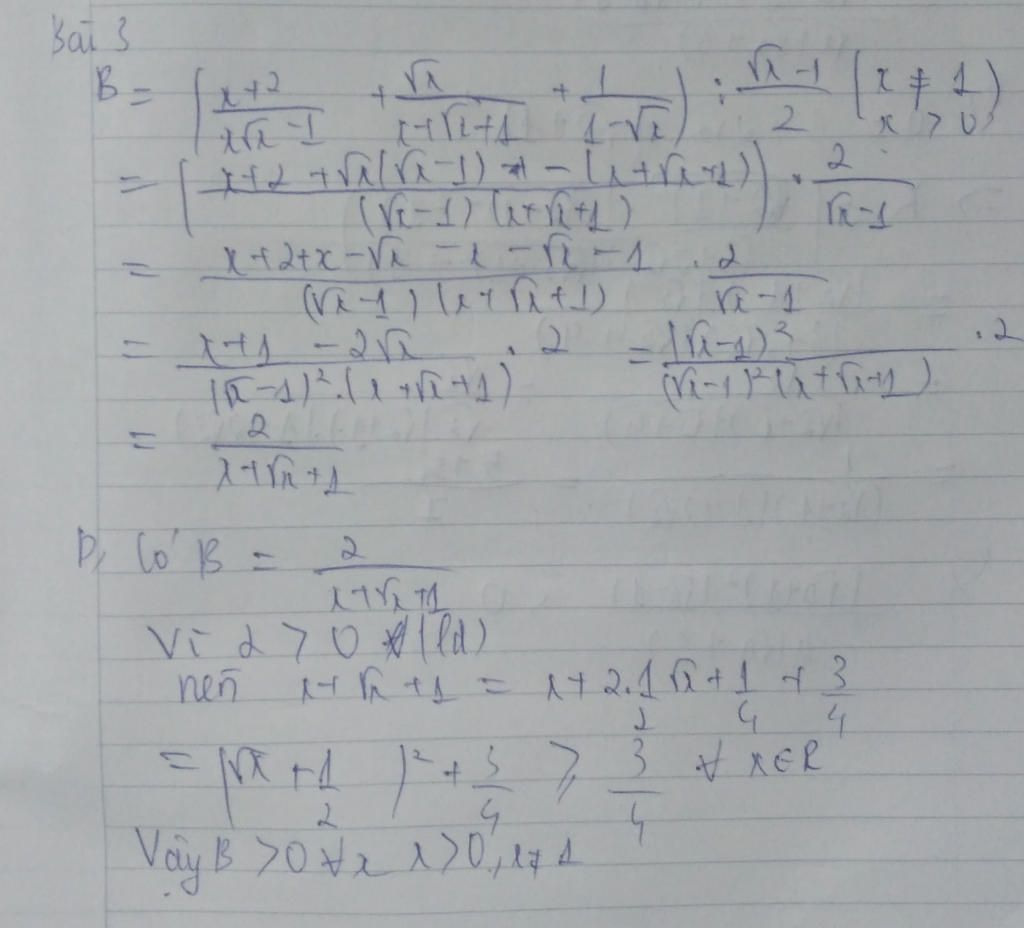 Bài 3
B = ( x+2 / x√x -1 + √x / x+√x+1 + 1 / 1-√x ) : √x -1 / 2 ( x ≠ 1 x > 0 )
= ( x+2 +√x(√x-1) - (x+√x+1) / (√x-1) (x+√x+1) ) . 2 / √x-1
= x+2+x-√x -x -√x -1 / (√x-1) (x+√x+1) . 2 / √x-1
= x+1 - 2√x / (√x-1)².(x+√x+1) . 2 = (√x-1)² / (√x-1)²(x+√x+1) . 2
= 2 / x+√x+1
b, Có B = 2 / x+√x+1
Vì 2 > 0 (lđ)
nên x+√x+1 = x+2.1/2 √x+1/4 + 3/4
= (√x +1/2 )² + 3/4 ≥ 3/4 ∀ x∈R
Vậy B >0 ∀x x>0, x≠1